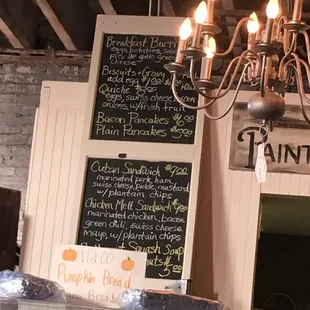 Breakfast Burri
eggs, potatoes
pick
Biscuits + Gravy
add egg $1.00
Quiche
eggs, swiss cheese
onions, w/ fruit
Bacon Pancakes
Plain Pancakes $5
Cuban Sandwich
marinated pork, ham
swiss cheese, pickle, mustard
w/ plantain chips
Chicken Melt Sandwich
marinated chicken, bacon
green chili, swiss cheese
mayo, w/ plantain chips
Squash Soup
nuts $5
$12.00
Pumkin
Bread
PAINT